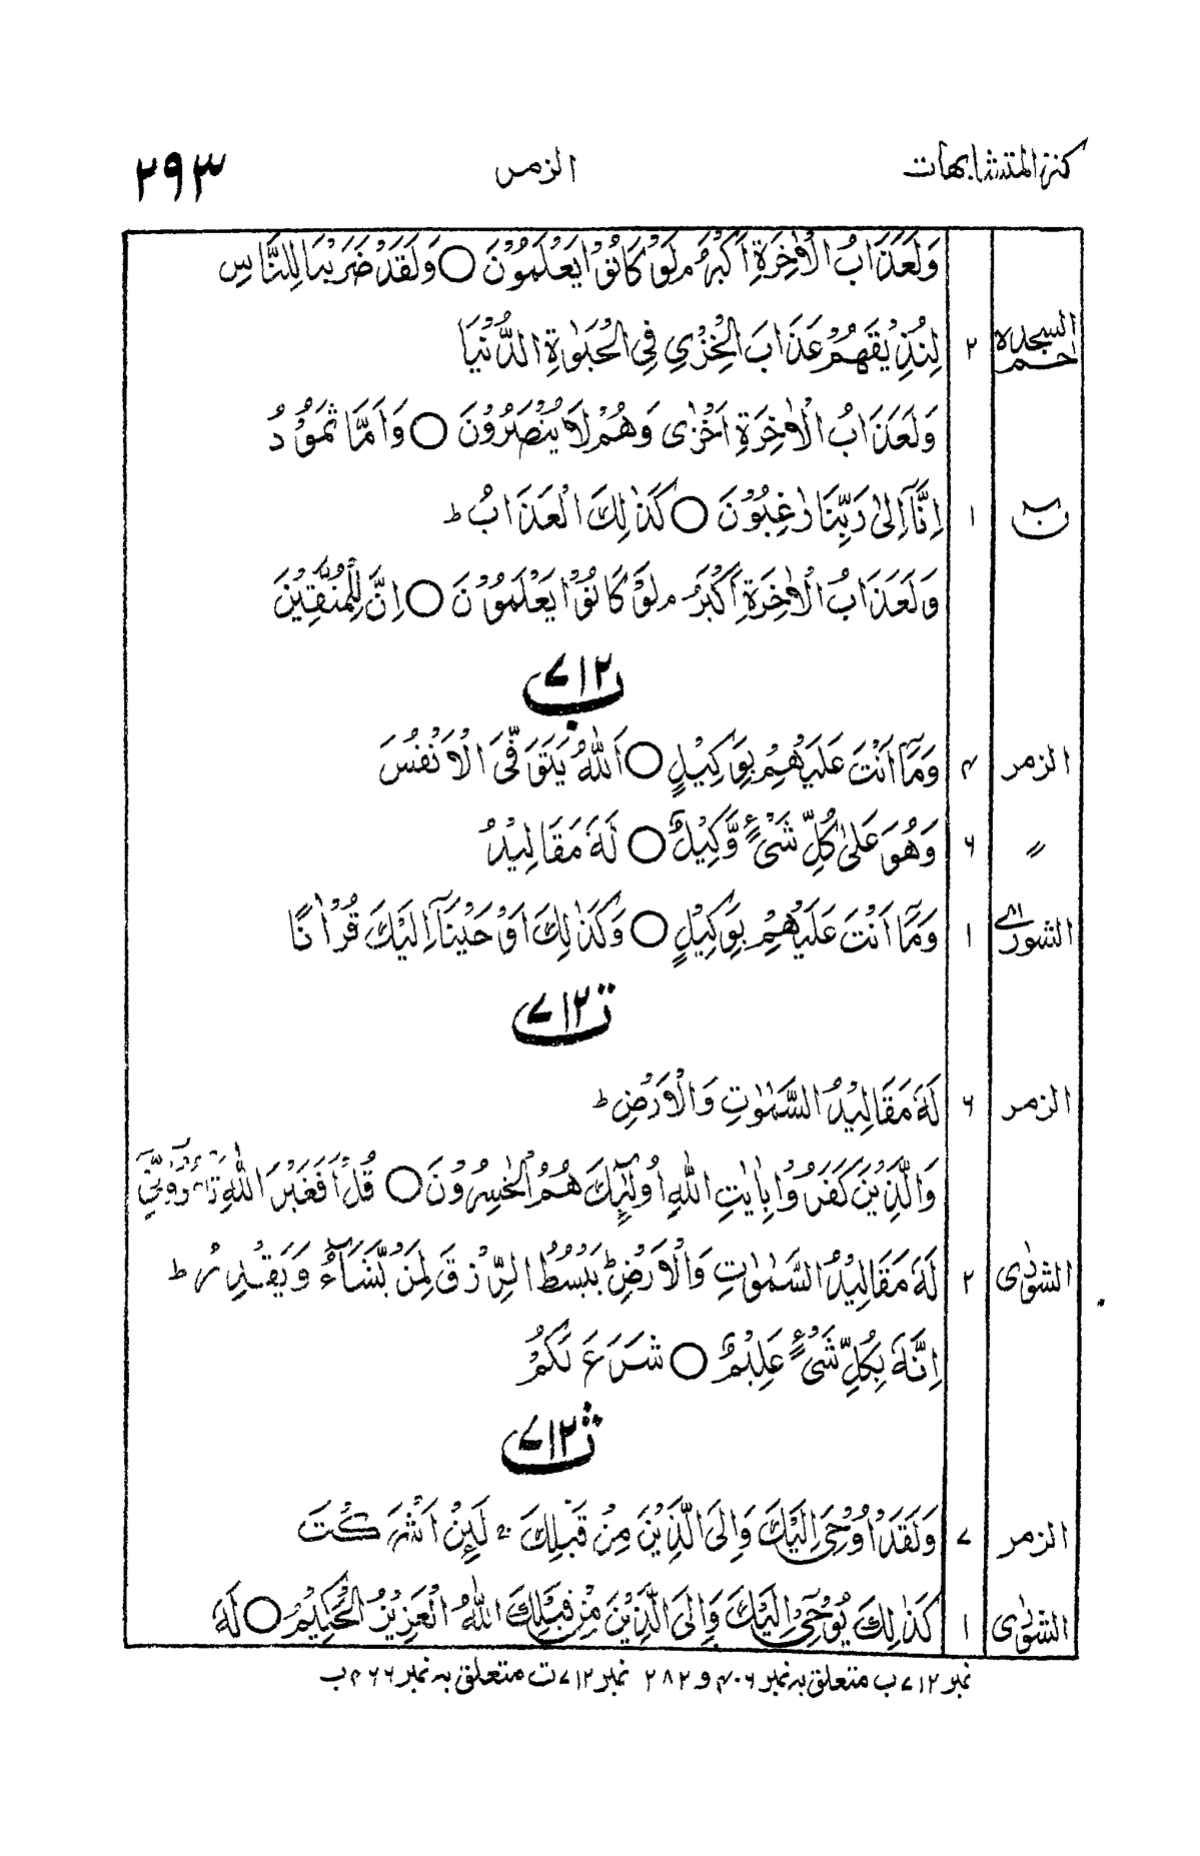 كنز المتشابهات الزمر ٢٩٣
وَلَعَذَابُ الْاٰخِرَةِ اَكْبَرُ مر لَوْ كَانُوْا يَعْلَمُوْنَ ○ وَلَقَدْ ضَرَبْنَا لِلنَّاسِ
حٰمٓ السجدة ٢ لِنُذِيْقَهُمْ عَذَابَ الْخِزْيِ فِي الْحَيٰوةِ الدُّنْيَا
وَلَعَذَابُ الْاٰخِرَةِ اَخْزٰى وَهُمْ لَا يُنْصَرُوْنَ ○ وَاَمَّا ثَمُوْدُ
نٓ ١ اِنَّآ اِلٰى رَبِّنَا رٰغِبُوْنَ ○ كَذٰلِكَ الْعَذَابُ ط
وَلَعَذَابُ الْاٰخِرَةِ اَكْبَرُ مر لَوْ كَانُوْا يَعْلَمُوْنَ ○ اِنَّ لِلْمُتَّقِيْنَ
٧١٢ ب
الزمر ٤ وَمَآ اَنْتَ عَلَيْهِمْ بِوَكِيْلٍ ○ اَللّٰهُ يَتَوَفَّى الْاَنْفُسَ
〃 ٦ وَهُوَ عَلٰى كُلِّ شَيْءٍ وَّكِيْلٌ ○ لَهٗ مَقَالِيْدُ
الشورٰى ١ وَمَآ اَنْتَ عَلَيْهِمْ بِوَكِيْلٍ ○ وَكَذٰلِكَ اَوْحَيْنَآ اِلَيْكَ قُرْاٰنًا
٧١٢ ت
الزمر ٦ لَهٗ مَقَالِيْدُ السَّمٰوٰتِ وَالْاَرْضِ ط
وَالَّذِيْنَ كَفَرُوْا بِاٰيٰتِ اللّٰهِ اُولٰٓئِكَ هُمُ الْخٰسِرُوْنَ ○ قُلْ اَفَغَيْرَ اللّٰهِ تَاْمُرُوْٓنِّيْ
الشورٰى ٢ لَهٗ مَقَالِيْدُ السَّمٰوٰتِ وَالْاَرْضِ ۚ يَبْسُطُ الرِّزْقَ لِمَنْ يَّشَآءُ وَيَقْدِرُ ط
اِنَّهٗ بِكُلِّ شَيْءٍ عَلِيْمٌ ○ شَرَعَ لَكُمْ
٧١٢ ث
الزمر ٧ وَلَقَدْ اُوْحِيَ اِلَيْكَ وَاِلَى الَّذِيْنَ مِنْ قَبْلِكَ ۚ لَئِنْ اَشْرَكْتَ
الشورٰى ١ كَذٰلِكَ يُوْحِيْٓ اِلَيْكَ وَاِلَى الَّذِيْنَ مِنْ قَبْلِكَ اللّٰهُ الْعَزِيْزُ الْحَكِيْمُ ○ لَهٗ
نمبر ٧١٢ ب متعلق به نمبر ٤٠٦ و ٢٨٢ نمبر ٧١٢ ت متعلق به نمبر ٤٦٦ ب